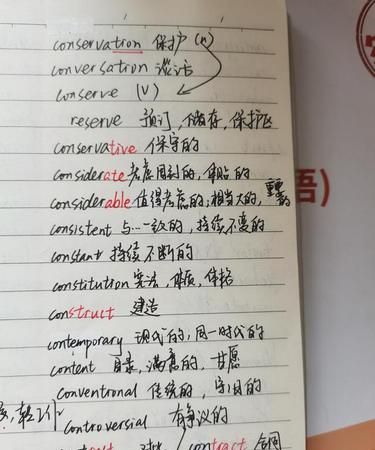 conservation 保护 (n)
conversation 谈话
conserve (V)
reserve 预订，储存，保护区
conservative 保守的
considerate 考虑周到的，体贴的
considerable 值得考虑的；相当大的，重要的
consistent 与…一致的，持续不变的
constant 持续不断的
constitution 宪法，体质，体格
construct 建造
contemporary 现代的，同一时代的
content 目录，满意的，甘愿
conventional 传统的，习俗的
controversial 有争议的
contract 合同
语)